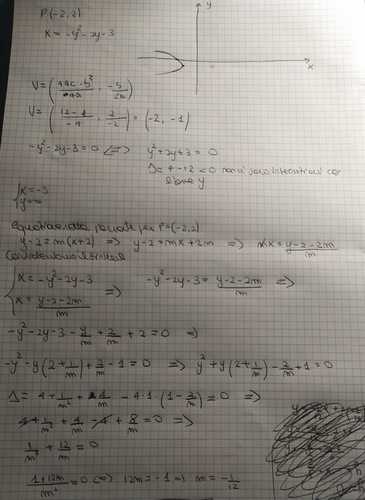 P(-2,2)
y
x = -y² - 2y - 3
x
V = (4ac - b² / 4a, -b / 2a)
V = (12 - 4 / -4, 2 / -2) = (-2, -1)
-y² - 2y - 3 = 0 <=> y² + 2y + 3 = 0
Δ = 4 - 12 < 0 non ci sono intersezioni con
l'asse y
{ x = -3
y = 0
Equazione retta passante per P = (-2,2)
y - 2 = m(x + 2) => y - 2 = mx + 2m => x = y - 2 - 2m / m
{ x = -y² - 2y - 3
x = y - 2 - 2m / m
=> -y² - 2y - 3 = y - 2 - 2m / m =>
-y² - 2y - 3 - y/m + 2/m + 2 = 0 =>
-y² - y(2 + 1/m) + 2/m - 1 = 0 => y² + y(2 + 1/m) - 2/m + 1 = 0
Δ = 4 + 1/m² + 4/m - 4·1·(1 - 2/m) = 0 =>
4 + 1/m² + 4/m - 4 + 8/m = 0 =>
1/m² + 12/m = 0
1 + 12m / m² = 0 <=> 12m = -1 => m = -1/12